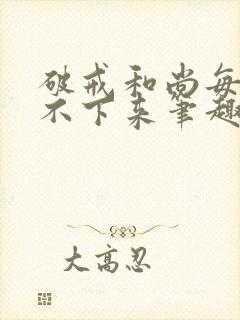 破戒和尚每
不下来笔趣
大高忍